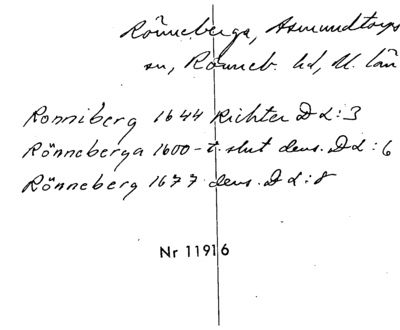 Rönneberga, Asmundtorps
sn, Rönneb. hd, M. län
Ronniberg 1644 Richter D L:3
Rönneberga 1600-t. slut dens. D L:6
Rönneberg 1677 dens. D L:8
Nr 11916